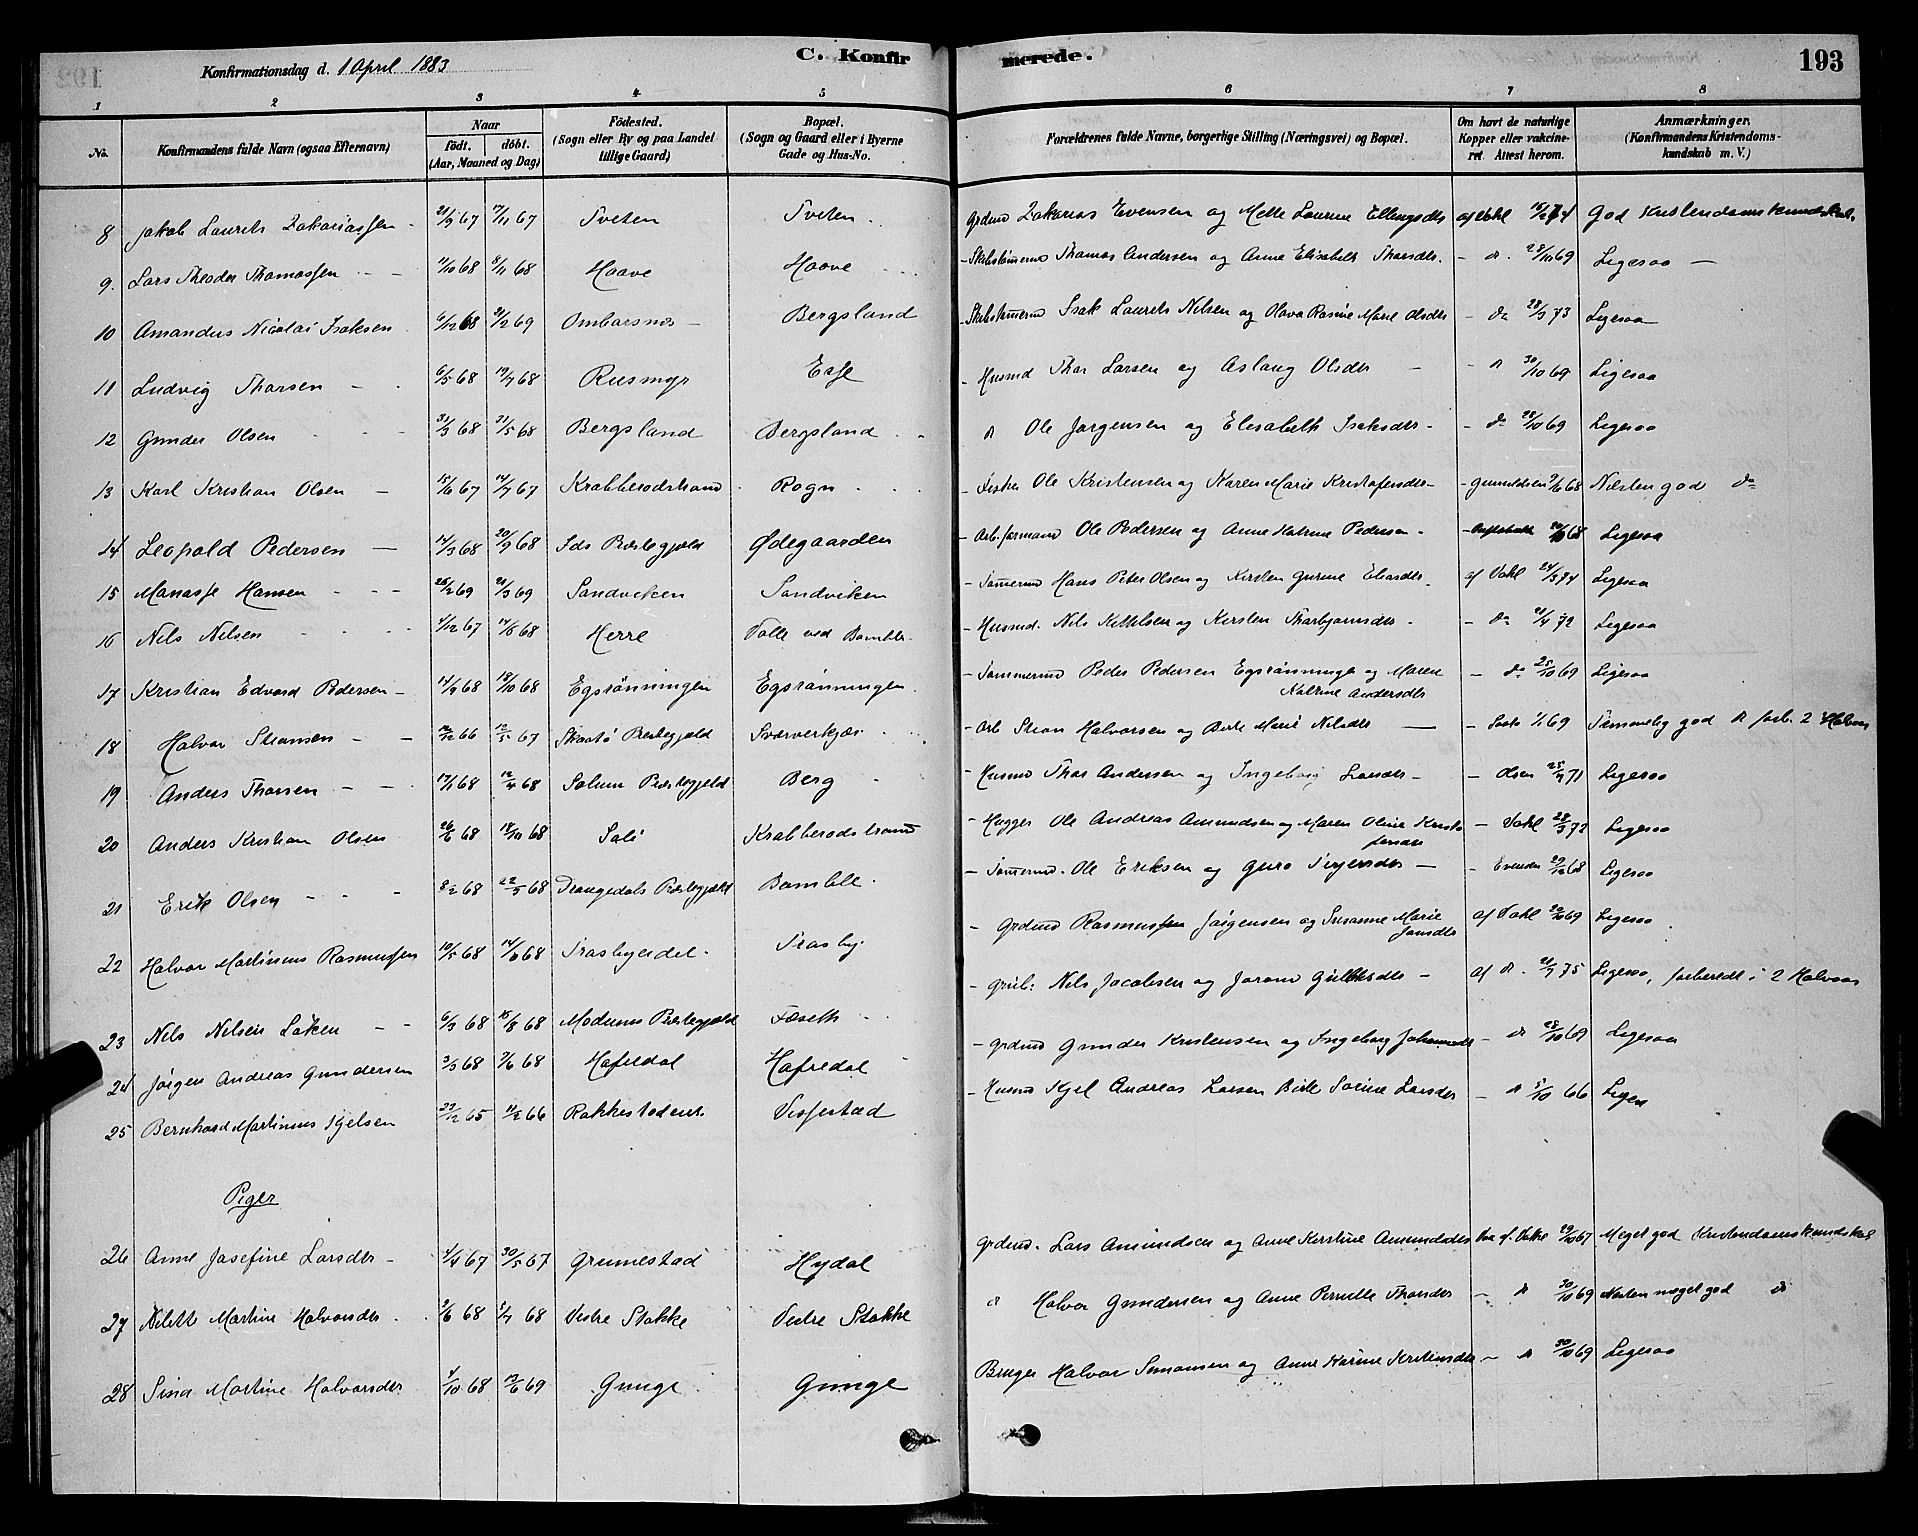 C. Konfir merede. 193
Konfirmationsdag d. 1 April 1883
1 2 3 4 5 6 7 8
No. Konfirmandens fulde Navn (ogsaa Efternavn) Naar født. døbt. (Aar, Maaned og Dag) Fødested. (Sogn eller By og paa Landet tillige Gaard) Bopæl. (Sogn og Gaard eller i Byerne Gade og Hus-No. Forældrenes fulde Navne, borgerlige Stilling (Næringsvei) og Bopæl. Om havt de naturlige Kopper eller vakcineret. Attest herom. Anmærkninger. (Konfirmandens Kristendomskundskab m. V.)
8 Jakob Laurits Zakariassen 21/9 67 17/11 67 Tveten Tveten Grdmd Zakarias Evensen og Mette Laurine Ellingsdtr af Vahl God Kristendomskundskab
9. Lars Theodor Thomassen 11/10 68 8/11 68 Haave Haave Skibstømmermd Thomas Andersen og Anne Elisabeth Thorsdtr. - d. 28/10 69 Ligesaa
10 Amandus Nicolai Isaksen 6/12 68 21/2 69 Ombarsnæs Bergsland Skibstømmermd Isak Laurits Nilsen og Olava Rasine Marie Olsdtr - do 28/3 73 Ligesaa
11 Ludvig Thorsen 6/5 68 19/7 68 Rusmyr Husmd Thor Larsen og Aslaug Olsdtr - d 30/10 69 Ligesaa
12 Gunder Olsen 31/3 68 31/5 68 Bergsland Bergsland d Ole Jørgensen og Elisabeth Isaksdtr - do 28/10 69 Ligesaa
13 Karl Kristian Olsen 15/6 67 14/7 67 Krabberødstrand Rogn Fisker Ole Kristensen og Maren Marie Kristofersdtr Gunuldsen 9/6 68 Næsten god do
14 Leopold Pedersen 14/3 68 20/9 68 Ids Præstegjeld Ødegaarden Arb.formand Ole Pedersen og Anne Katrine Pedersen 68 Ligesaa
15 Manasse Hansen 26/2 69 21/3 69 Sandviken Sandviken Tømmermd Hans Peter Olsen og Kirsten Gurine Eliasdtr. af Vahl 24/3 74 Ligesaa
16 Nils Nilsen 1/12 67 14/6 68 Herre Valle ved Bamble Husmd. Nils Kittelsen og Kirsten Thorbjørnsdtr - do 21/4 72 Ligesaa
17 Kristian Edvard Pedersen 14/9 68 18/10 68 Egsrønningen Egsrønningen Tømmermd Peder Pedersen Egsrønningen og Maren Katrine Andersdtr - do 25/10 69 Ligesaa
18 Halvor Steansen 12/12 66 12/5 67 Skaatø Præstegjeld Arb Stean Halvorsen og Birte Marie Nilsdtr 69 Temmelig god d forb. 2 Halvaar
19 Anders Thorsen 17/1 68 12/4 68 Solum Præstegjeld Berg Husmd Thor Andersen og Ingeborg Larsdtr - Olsen 25/9 71 Ligesaa
20 Anders Kristian Olsen 26/6 68 18/10 68 Krabberødstrand Hugger Ole Andreas Amundsen og Maren Oline Kristofersdtr - Vahl 28/3 72 Ligesaa
21 Erik Olsen 8/2 68 22/3 68 Drangedals Præstegjeld Bamble Tømmermd. Ole Eriksen og Guro Terjersdtr - Evensen 29/12 68 Ligesaa
22 Halvor Martinius Rasmussen 10/5 68 14/6 68 Trasbyeidet Trasby Grdmd Rasmus Jørgensen og Susanne Marie Jonsdtr af Vahl 20/10 69 Ligesaa.
23 Nils Nilsen Løken 6/3 68 15/8 68 Modums Præstegjeld Fæseth Grub: Nils Jacobsen og Jorand Gulliksdtr af d. 21/7 75 Ligesaa, forberedt i 2 Halvaar
24 Jørgen Andreas Gundersen 2/3 68 7/6 68 Hafredal Hafredal Grdmd Gunder Kristensen og Ingeborg Johannesdtr - d 28/10 69 Ligesaa
25 Bernhard Martinius Kjelsen 23/12 65 11/2 66 Rakkestadeiet Vissestad Husmd Kjel Andreas Larsen Birte Sørine Larsdtr - d 5/10 66 Ligesaa
Piger
26 Anne Josefine Larsdtr 4/4 67 30/5 67 Grummestad Hydal Grdmd. Lars Amundsen og Anne Kirstine Amundsdtr Vac af. Vahl 29/10 67 Meget god Kristendomskundskab
27 Nilette Martine Halvorsdtr 2/6 68 5/7 68 Vestre Stokke Vestre Stokke d Halvor Gundersen og Anne Pernille Thorsdtr - d 30/10 69 Næsten meget god d
28 Sina Martine Halvorsdtr 4/10 68 13/6 69 Grunge Grunge Bruger Halvor Simonsen og Anne Karine Kristensdtr - d 30/10 69 Ligesaa